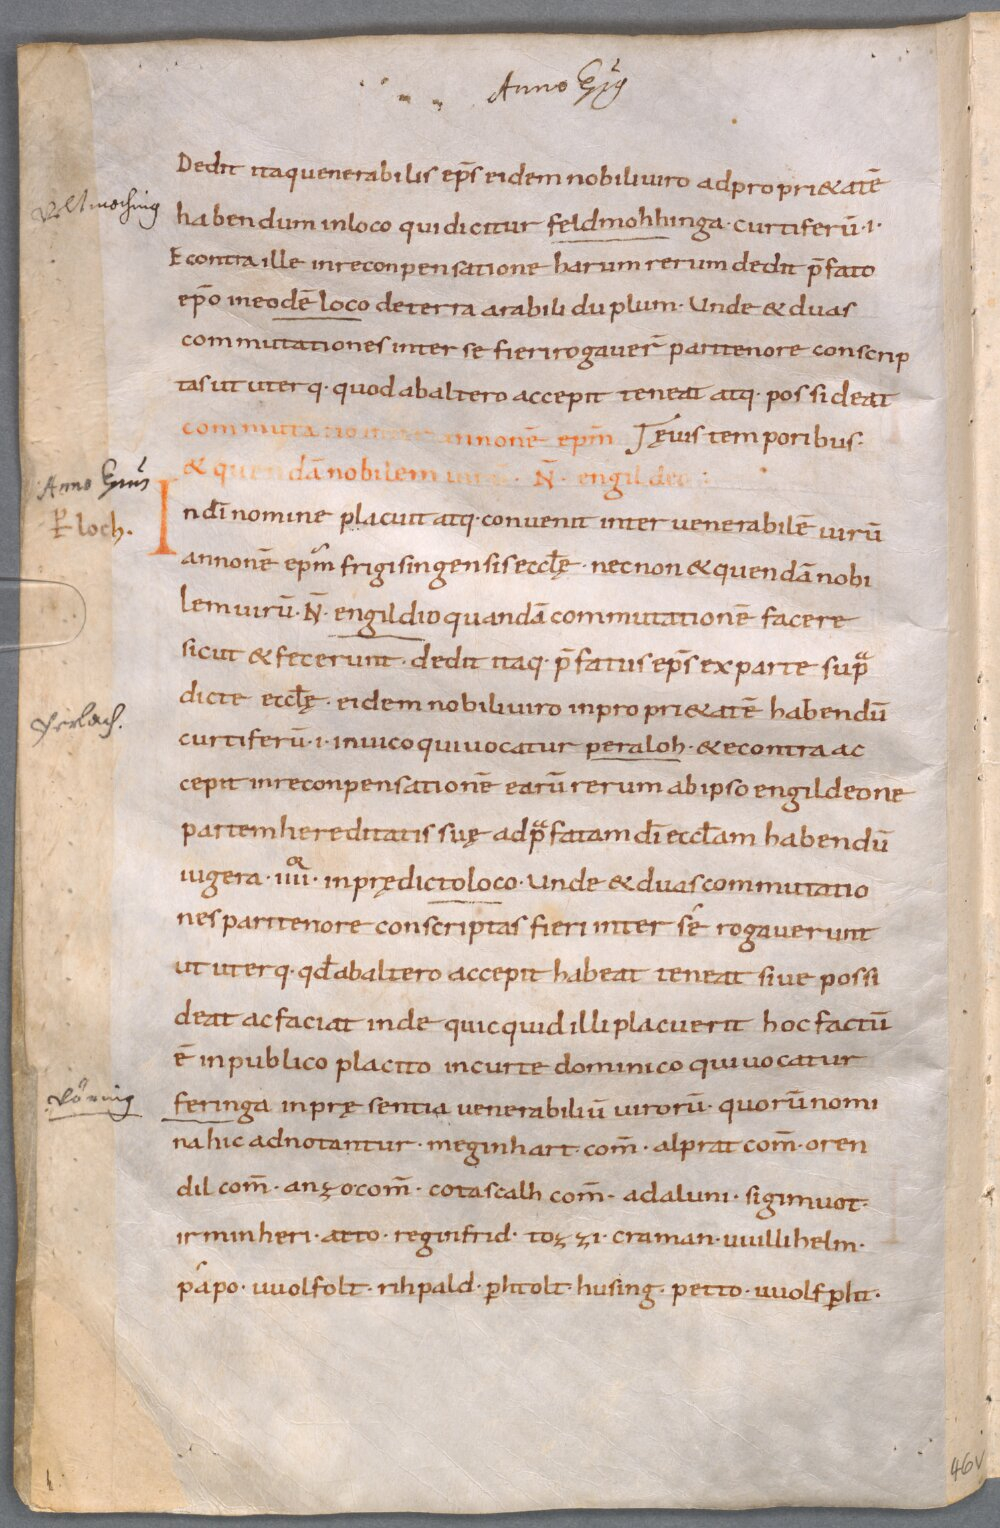 Anno Ep̃s
Dedit itaq venerabilis ep̃s eidem nobili viro ad propri&atē
Veltmoching
habendum in loco qui dicitur feldmohhinga · curtiferū · I ·
E contra ille in reconpensatione harum rerum dedit p̄fato
ep̄o in eodē loco de terra arabili duplum · Unde & duas
commutationes inter se fieri rogaver̄ pari tenore conscrip
tas ut uterq · quod ab altero accepit teneat atq · possideat
commutatio inter annonē ep̄m
& quendā nobilem virū · N̄ · engildeo :
Anno
loch.
In dī nomine placuit atq · convenit inter venerabilē virū
annonē ep̄m frigisingensis eccłę · necnon & quendā nobi
lem virū · N̄ · engildio quandā commutationē facere
sicut & fecerunt · dedit itaq · p̄fatus ep̄s ex parte sup̄
dicte eccłę · eidem nobili viro in propri&atē habendū
Perlach.
curtiferū · I · in vico qui vocatur peraloh · & econtra ac
cepit in reconpensationē earū rerum ab ipso engildeone
partem hereditatis suę ad p̄fatam dī eccłam habendū
iugera · IIII · in prędicto loco · Unde & duas commutatio
nes pari tenore conscriptas fieri inter se rogaverunt
ut uterq · qđ ab altero accepit habeat teneat sive possi
deat ac faciat inde quicquid illi placuerit hoc factū
ē in publico placito in curte dominico qui vocatur
Vöring
feringa in prę sentia venerabiliū virorū · quorū nomi
na hic adnotantur · meginhart · com̄ · alprat com̄ · oren
dil com̄ · anzo com̄ · cotascalh com̄ · adaluni · sigimuot ·
irminheri · aeto · reginfrid · tozzi · craman · uuillihelm ·
papo · uuolfolt · rihpald · p̱htolt · husing · petto · uuolfp̱ht ·
46v